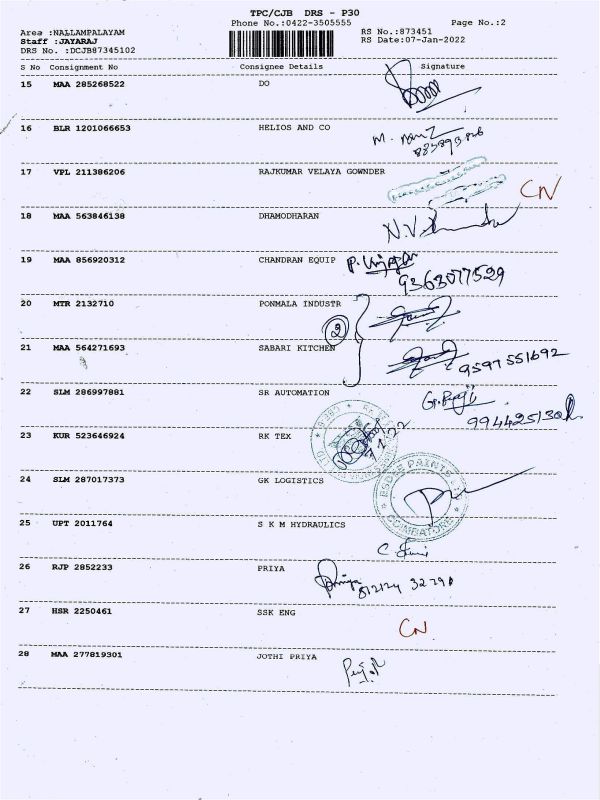 TPC/CJB DRS - P30
Phone No.:0422-3505555 Page No.:2
Area :NALLAMPALAYAM RS No.:873451
Staff :JAYARAJ RS Date:07-Jan-2022
DRS No. :DCJB87345102
S No Consignment No Consignee Details Signature
15 MAA 285268522 DO
16 BLR 1201066653 HELIOS AND CO
17 VPL 211386206 RAJKUMAR VELAYA GOWNDER
CN
18 MAA 563846138 DHAMODHARAN
19 MAA 856920312 CHANDRAN EQUIP
9363077529
20 MTR 2132710 PONMALA INDUSTR
2
21 MAA 564271693 SABARI KITCHEN
9597551692
22 SLM 286997881 SR AUTOMATION
23 KUR 523646924 RK TEX
24 SLM 287017373 GK LOGISTICS
PAINTS
COIMBATORE
25 UPT 2011764 S K M HYDRAULICS
26 RJP 2852233 PRIYA
27 HSR 2250461 SSK ENG
CN
28 MAA 277819301 JOTHI PRIYA